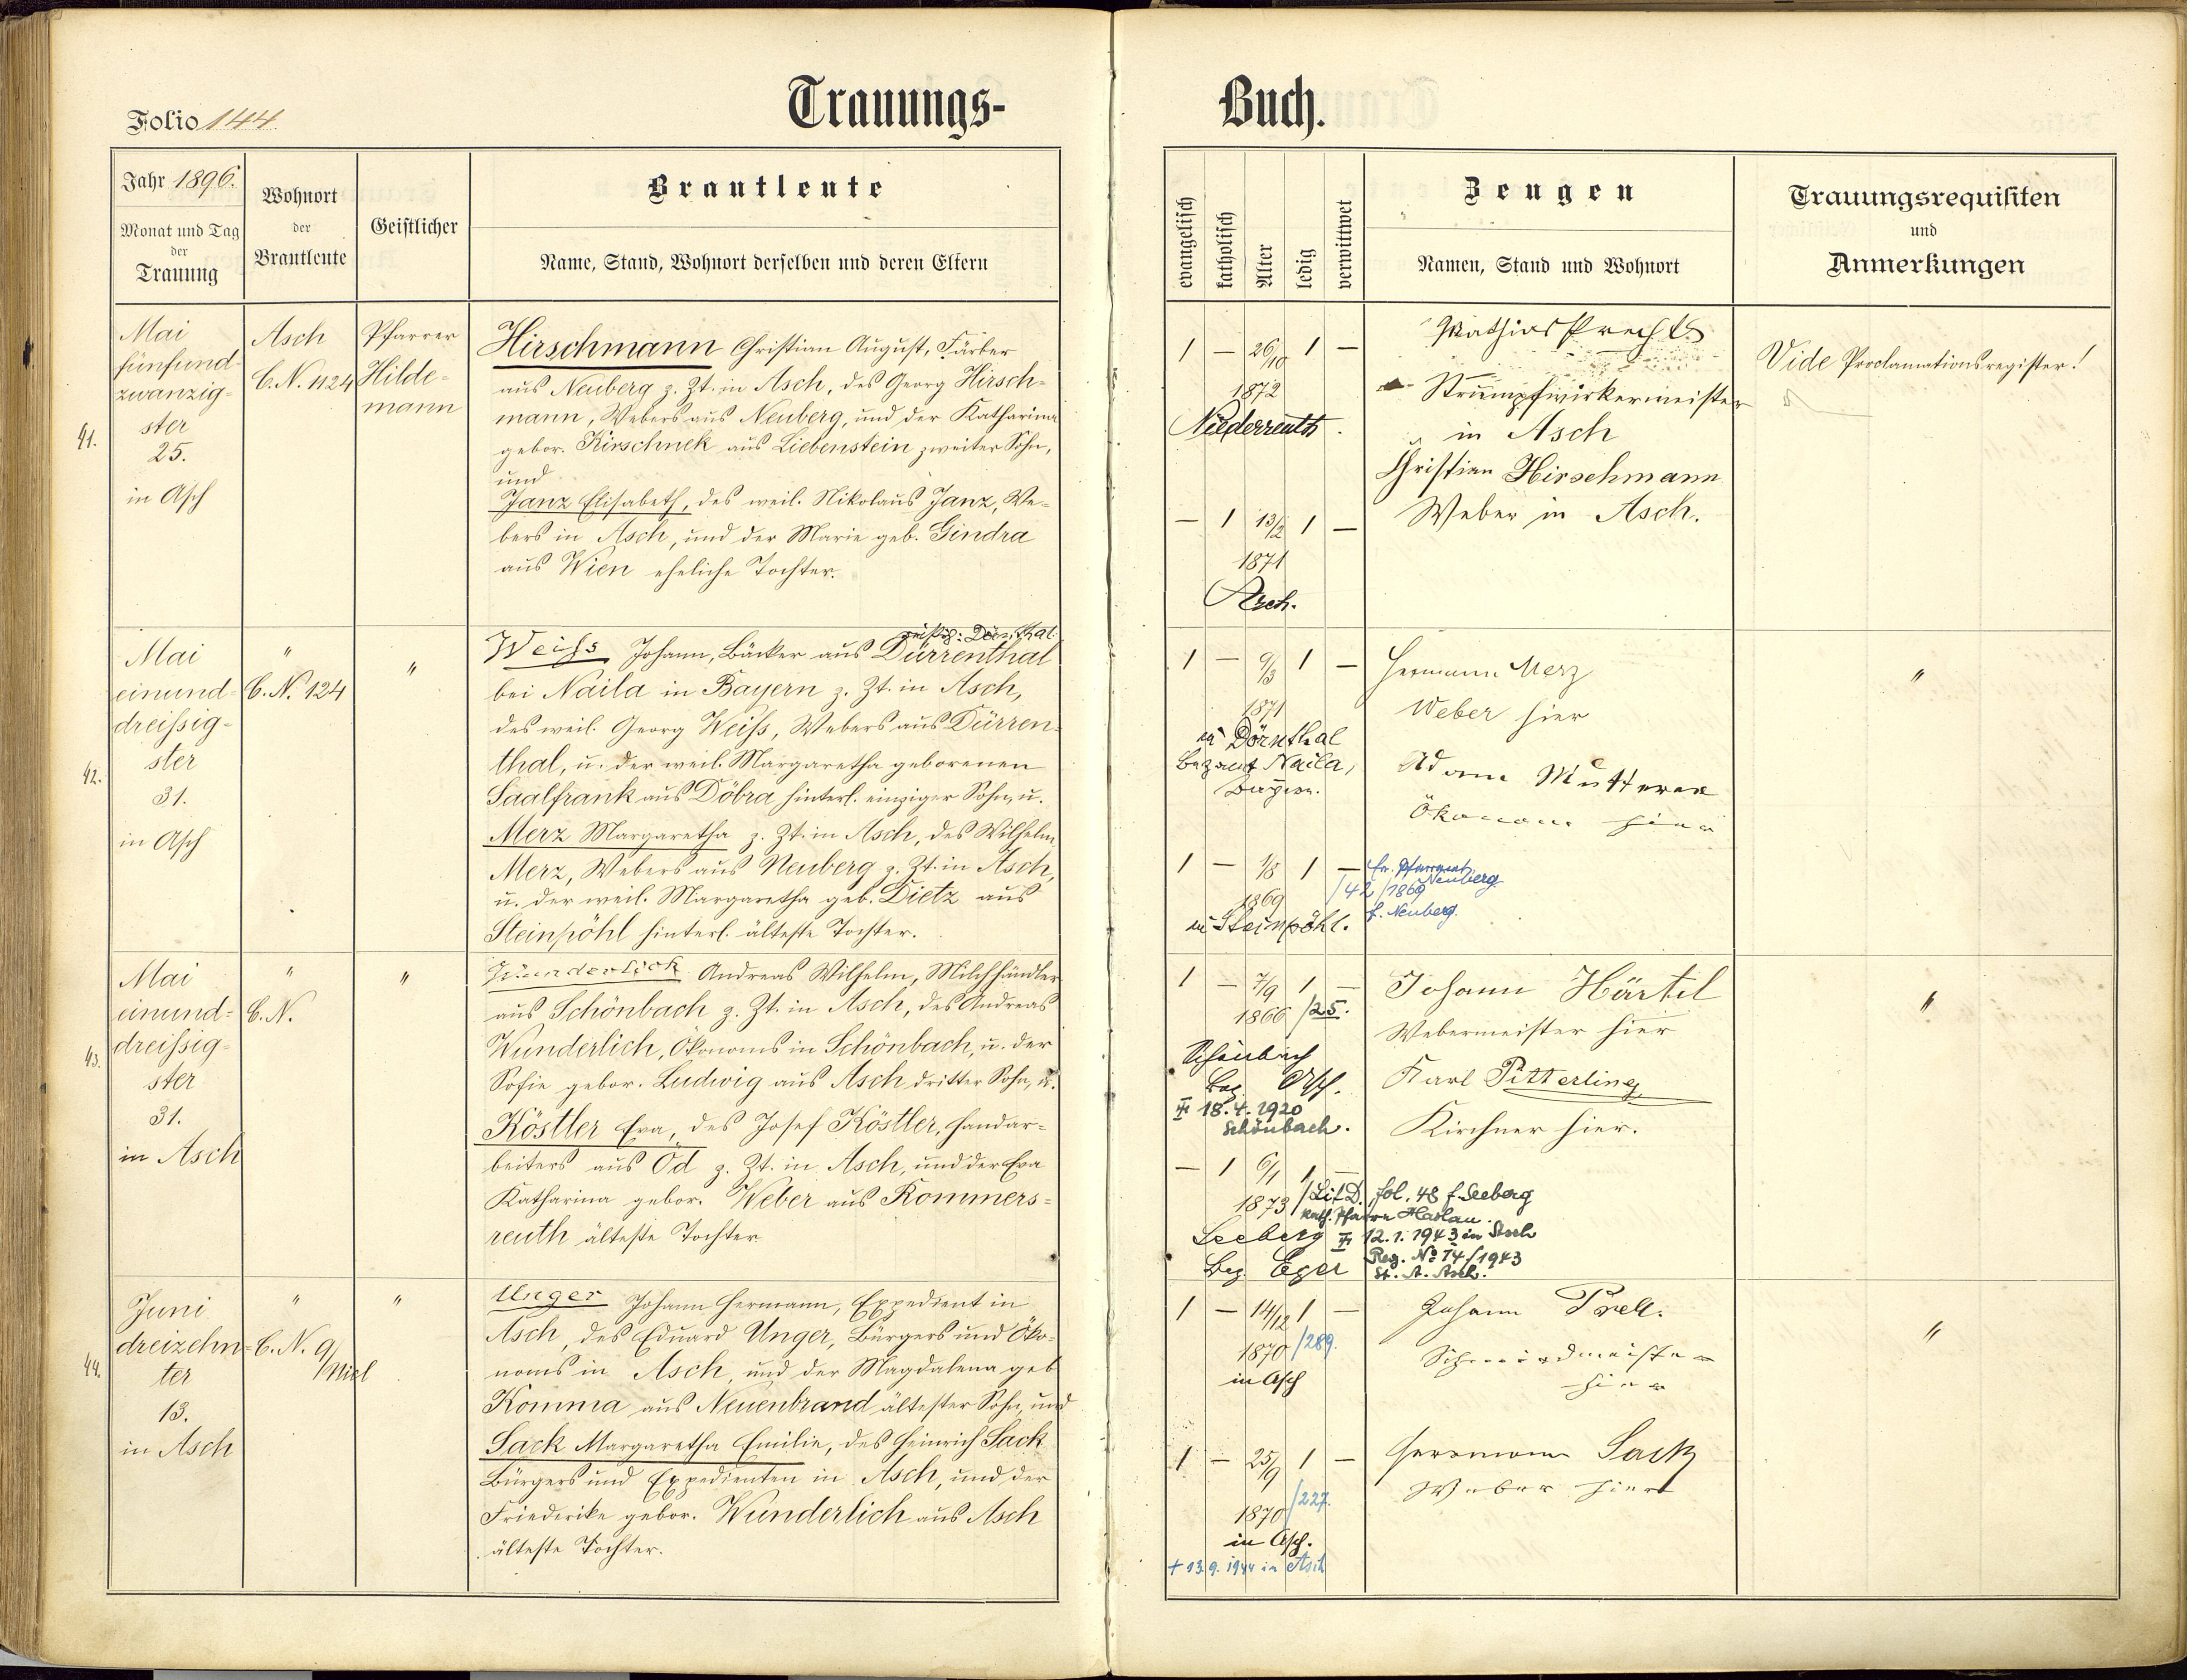 Trauungs-
Buch.
Folio 144
Jahr 1896.
Monat und Tag
der
Trauung
Wohnort
der
Brautleute
Geistlicher
Brautleute
Name, Stand, Wohnort derselben und deren Eltern
evangelisch
katholisch
Alter
ledig
verwittwet
Zeugen
Namen, Stand und Wohnort
Trauungsrequisiten
und
Anmerkungen
41.
Mai
fünfund-
zwanzig-
ster
25.
in Asch
Asch
C.N. 1124
Pfarrer
Hilde-
mann
Hirschmann Christian August, Färber
aus Neuberg z. Zt. in Asch, des Georg Hirsch-
mann, Webers aus Neuberg, und der Katharina
gebor. Kirschnek aus Liebenstein zweiter Sohn,
und
Janz Elisabeth, des weil. Nikolaus Janz, We-
bers in Asch, und der Marie geb. Gindra
aus Wien eheliche Tochter.
1 — 26/10 1 —
1872
Niederreuth.
— 1 13/2 1 —
1871
Asch.
Mathias Prechtl
Strumpfwirkermeister
in Asch
Christian Hirschmann
Weber in Asch.
Vide Proclamationsregister!
42.
Mai
einund-
dreissig-
ster
31.
in Asch
"
C.N. 124
"
richtig: Dörnthal.
Weiss Johann, Bäcker aus Dürrenthal
bei Naila in Bayern z. Zt. in Asch,
des weil. Georg Weiss, Webers aus Dürren-
thal, u. der weil. Margaretha geborenen
Saalfrank aus Döbra hinterl. einziger Sohn, u.
Merz Margaretha z. Zt. in Asch, des Wilhelm
Merz, Webers aus Neuberg z. Zt. in Asch,
u. der weil. Margaretha geb. Dietz aus
Steinpöhl hinterl. älteste Tochter.
1 — 9/3 1 —
1871
in Dörnthal
Bezamt Naila,
Bayern.
1 — 1/8 1 —
1869
in Steinpöhl.
Hermann Merz
Weber hier
Adam
Ökonom hier
Pfarramt
Neuberg
/42/1869
f. Neuberg.
"
43.
Mai
einund-
dreissig-
ster
31.
in Asch
"
C.N.
"
Wunderlich Andreas Wilhelm, Milchhändler
aus Schönbach z. Zt. in Asch, des Andreas
Wunderlich, Ökonoms in Schönbach, u. der
Sofie gebor. Ludwig aus Asch dritter Sohn, u.
Köstler Eva, des Josef Köstler, Handar-
beiters aus Öd z. Zt. in Asch, und der Eva
Katharina gebor. Weber aus Rommers-
reuth älteste Tochter
1 — 7/9 1 —
1866 /25.
Schönbach
Bez. Asch.
18.4.1920
Schönbach.
— 1 6/1 1 —
1873 /Lit D. fol. 48 f. Seeberg
kath. Pfarre Haslau.
Seeberg 12.1.1943 in Asch
Bez. Eger Reg. No 14/1943
St. A. Asch.
Johann Härtel
Webermeister hier
Karl Pitterling
Kirchner hier.
"
44.
Juni
dreizehn-
ter
13.
in Asch
"
C.N. 9/
Niel
"
Unger Johann Hermann, Expedient in
Asch, des Eduard Unger, Bürgers und Öko-
noms in Asch, und der Magdalena geb
Komma aus Neuenbrand ältester Sohn, und
Sack Margaretha Emilie, des Heinrich Sack
Bürgers und Expedienten in Asch, und der
Friederike gebor. Wunderlich aus Asch
älteste Tochter.
1 — 14/12 1 —
1870 /289.
in Asch
1 — 25/9 1 —
1870 /227.
in Asch.
+ 13.9.1944 in Asch
Johann Prell.
Schmiedmeister
hier
Hermann Sack
Weber hier
"